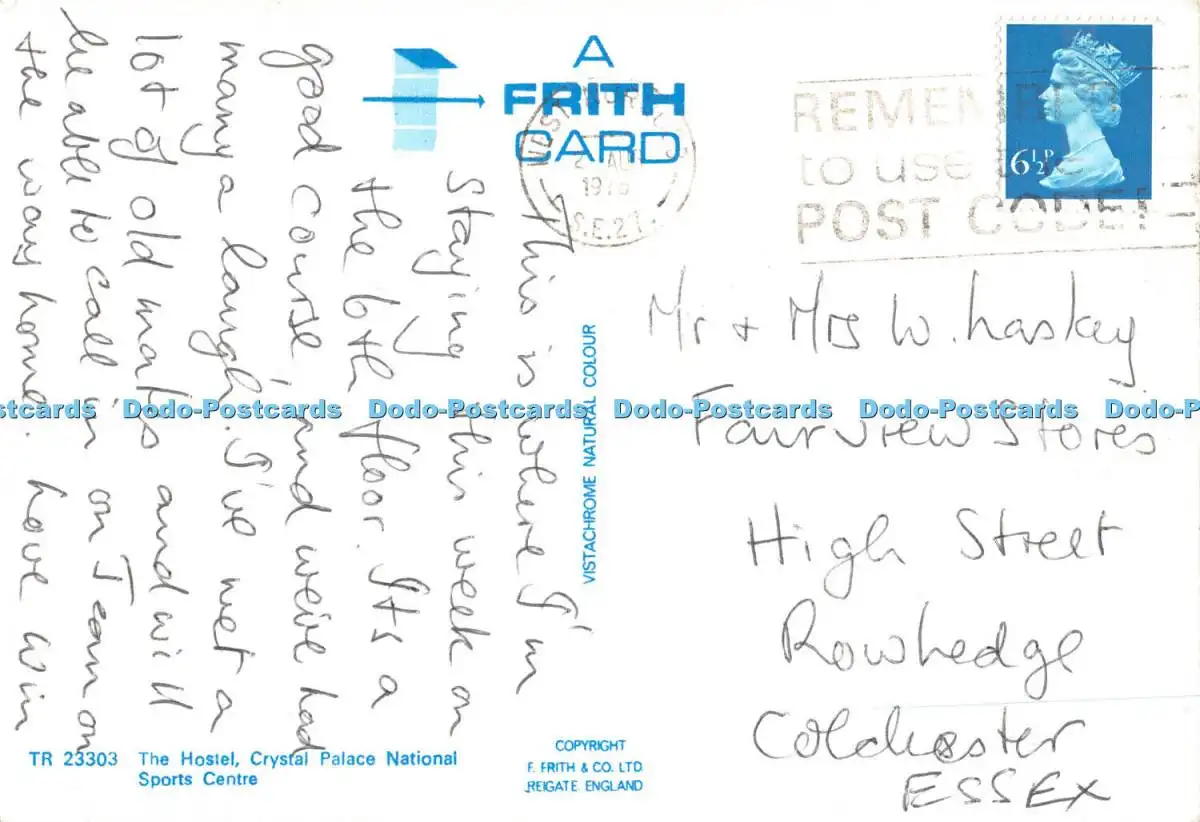 A
FRITH
CARD
REMEMBER
to use the
POST CODE!
2 AU
1976
S.E.27.
6½P
This is where I'm
Staying this week on
the 6th floor. Its a
good course and we've had
many a laugh. I've met a
lot of old mates and will
be able to call in on Jean on
the way home. Love Win
Mr + Mrs W. Laskey
Fairview Stores
High Street
Rowhedge
Colchester
ESSEX
VISTACHROME NATURAL COLOUR
TR 23303 The Hostel, Crystal Palace National
Sports Centre
COPYRIGHT
F. FRITH & CO. LTD
REIGATE ENGLAND
stcards Dodo-Postcards Dodo-Postcards Dodo-Postcards Dodo-Postcards Dodo-P